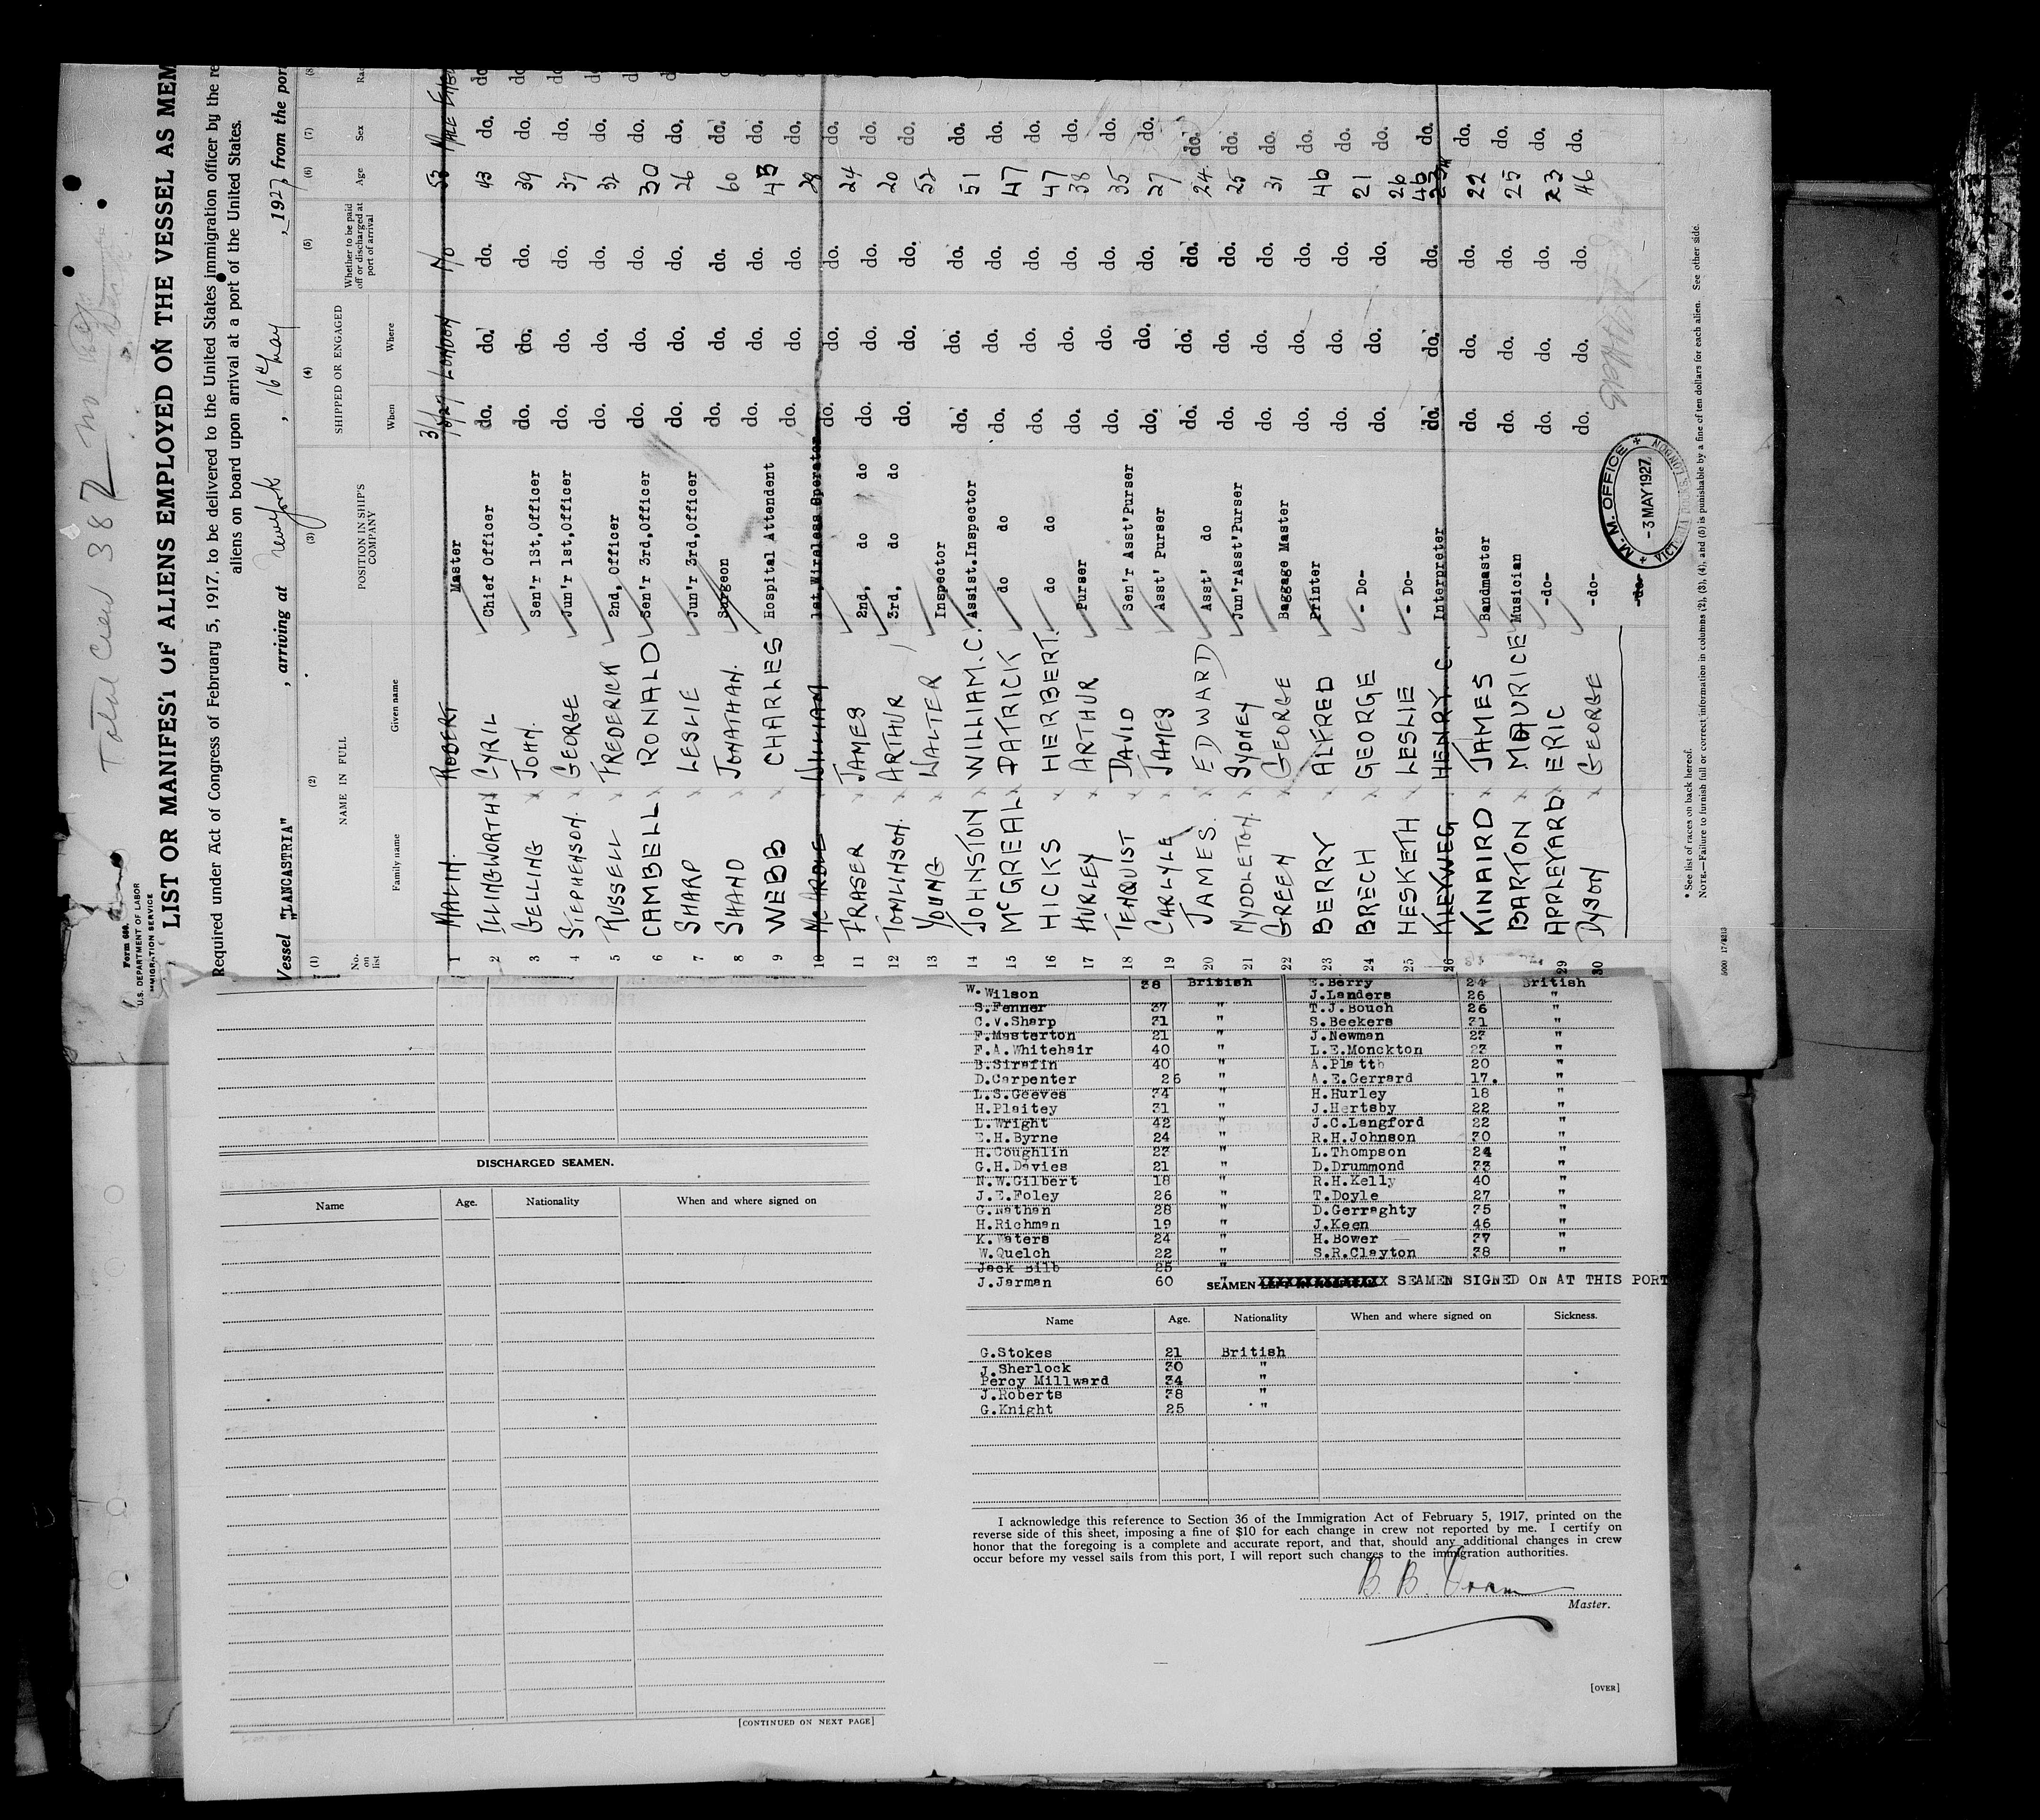 Total Crew 387
Form 680
U.S. DEPARTMENT OF LABOR
IMMIGRATION SERVICE
LIST OR MANIFEST OF ALIENS EMPLOYED ON THE VESSEL AS MEM
Required under Act of Congress of February 5, 1917, to be delivered to the United States immigration officer by the re
aliens on board upon arrival at a port of the United States.
Vessel "LANCASTRIA" , arriving at New York , 16th May , 1927, from the por
(1) (2) (3) (4) (5) (6) (7) (8
No. on list NAME IN FULL Family name Given name POSITION IN SHIP'S COMPANY SHIPPED OR ENGAGED When Where Whether to be paid off or discharged at port of arrival Age Sex Rac
1 MALIN. ROBERT Master 3/5/27 LONDON No 53 MALE
2 ILLINGWORTH CYRIL Chief Officer do. do. do. 43 do. do
3 GELLING JOHN. Sen'r 1St,Officer do. do. do. 39 do. do
4 STEPHENSON. GEORGE Jun'r 1st,Officer do. do. do. 37 do. do
5 RUSSELL FREDERICK 2nd, Officer do. do. do. 32 do. do
6 CAMBELL RONALD Sen'r 3rd,Officer do. do. do. 30 do. d
7 SHARP LESLIE Jun'r 3rd,Officer do. do. do. 26 do. d
8 SHAND JONATHAN. Surgeon do. do. do. 60 do.
9 WEBB CHARLES Hospital Attendent do. do. do. 43 do.
10 McARDLE WILLIAM 1st,Wireless Operator do. do. do. 28 do.
11 FRASER JAMES 2nd, do do do. do. do. 24 do.
12 TOMLINSON. ARTHUR 3rd, do do do. do. do. 20 do.
13 YOUNG WALTER Inspector 52
14 JOHNSTON WILLIAM.C. Assist.Inspector do. do. do. 51 do.
15 McGREAL PATRICK do do do. do. do. 47 do.
16 HICKS HERBERT. do do do. do. do. 47 do.
17 HURLEY ARTHUR Purser do. do. do. 38 do.
18 TENQUIST DAVID Sen'r Asst'Purser do. do. do. 35 do.
19 CARLYLE JAMES Asst' Purser do. do. do. 27 do.
20 JAMES. EDWARD Asst' do do. do. do. 24 do.
21 MYDDLETON. SYDNEY Jun'rAsst'Purser do. do. do. 25 do.
22 GREEN GEORGE Baggage Master do. do. do. 31 do.
23 BERRY ALFRED Printer do. do. do. 46 do.
24 BRECH GEORGE - Do- do. do. do. 21 do.
25 HESKETH LESLIE - Do- 26 do.
26 KLEYWEG HENRY.C. Interpreter do. do. do. do.
KINNAIRD JAMES Bandmaster do. do. do. 22 do.
BARTON MAURICE Musician do. do. do. 25 do.
29 APPLEYARD ERIC -do- do. do. do. 23 do.
30 DYSON GEORGE -do- do. do. do. 46 do.
-do-
M. M. OFFICE
- 3 MAY 1927
VICTORIA DOCKS, LONDON
* See list of races on back hereof.
NOTE.—Failure to furnish full or correct information in columns (2), (3), (4), and (5) is punishable by a fine of ten dollars for each alien. See other side.
DISCHARGED SEAMEN.
Name Age. Nationality When and where signed on
[CONTINUED ON NEXT PAGE]
W. Wilson 38 British E.Berry 24 British
S.Fenner 37 " J.Landers 26 "
C.V.Sharp 31 " T.J.Bouch 26 "
F.Masterton 21 " S.Beekers 31 "
F.A.Whitehair 40 " J.Newman 23 "
B.Sirafin 40 " L.E.Monckton 23 "
D.Carpenter 26 " A.Platto 20 "
L.S.Geeves 34 " A.E.Gerrard 17. "
H.Plaitey 31 " H.Hurley 18 "
L.Wright 42 " J.Hertsby 22 "
E.H.Byrne 24 " J.C.Langford 22 "
H.Coughlin 23 " R.H.Johnson 30 "
G.H.Davies 21 " L.Thompson 24 "
N.W.Gilbert 18 " D.Drummond 33 "
J.E.Foley 26 " R.H.Kelly 40 "
G.Nathan 28 " T.Doyle 27 "
H.Richman 19 " D.Gerraghty 35 "
K.Waters 24 " J.Keen 46 "
W.Quelch 22 " H.Bower 37 "
Jack Bilb 25 " S.R.Clayton 38 "
J.Jarman 60 "
SEAMEN LEFT IN HOSPITAL SEAMEN SIGNED ON AT THIS PORT
Name Age. Nationality When and where signed on Sickness.
G.Stokes 21 British
J.Sherlock 30 "
Percy Millward 34 "
J.Roberts 38 "
G.Knight 25 "
I acknowledge this reference to Section 36 of the Immigration Act of February 5, 1917, printed on the
reverse side of this sheet, imposing a fine of $10 for each change in crew not reported by me. I certify on
honor that the foregoing is a complete and accurate report, and that, should any additional changes in crew
occur before my vessel sails from this port, I will report such changes to the immigration authorities.
Master.
[OVER]